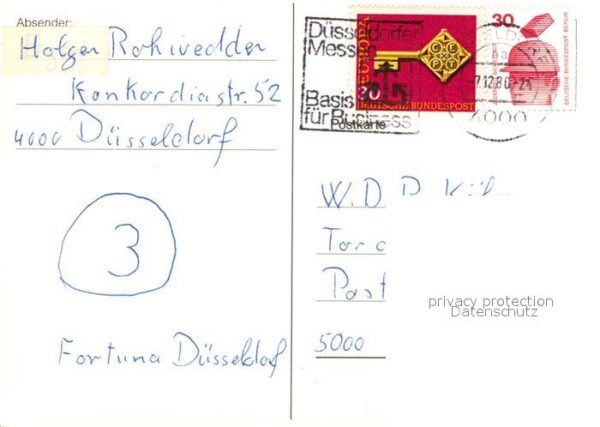 Absender:
Holger Rohwedder
Konkordiastr. 52
4000 Düsseldorf
3
Fortuna Düsseldorf
Düsseldorfer
Messen
Basis
für Business
EUROPA
30
DEUTSCHE BUNDESPOST
30
DEUTSCHE BUNDESPOST BERLIN
4000
Postkarte
W.D.D
Torc
Post
5000
privacy protection
Datenschutz